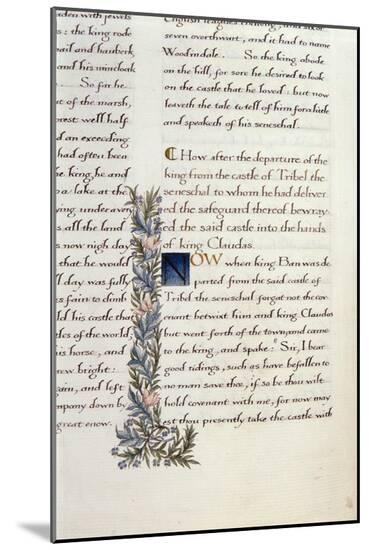 den with jewels
s: the king rode
nail and hauberk
and his mincloak
So far he
t of the marsh,
rest well half
d an exceeding
had often been
he king, he and
o a lake at the
ing under a very
all the land
s now nigh day
that he would
ll day was fully
es fain to climb
ld his castle
tles of the world
is horse, and
rew bright:
ain, and left
mpany down by
great enow.
English leagues
seven overthwart, and it had to name
Woodindale. So the king abode
on the hill, for sore he desired to look
on the castle that he loved: but now
leaveth the tale to tell of him for a little
and speaketh of his seneschal.
How after the departure of the
king from the castle of Tribel the
seneschal to whom he had deliver
ed the safeguard thereof bewray
ed the said castle into the hands
of king Claudas.
NOW when king Ban was de
parted from the said castle of
Tribel the seneschal forgat not the co
venant betwixt him and king Claudas
but went forth of the town and came
to the king, and spake: "Sir, I bear
good tidings, such as have befallen to
no man save thou, if so be thou wilt
hold covenant with me, for now may
est thou presently take the castle with